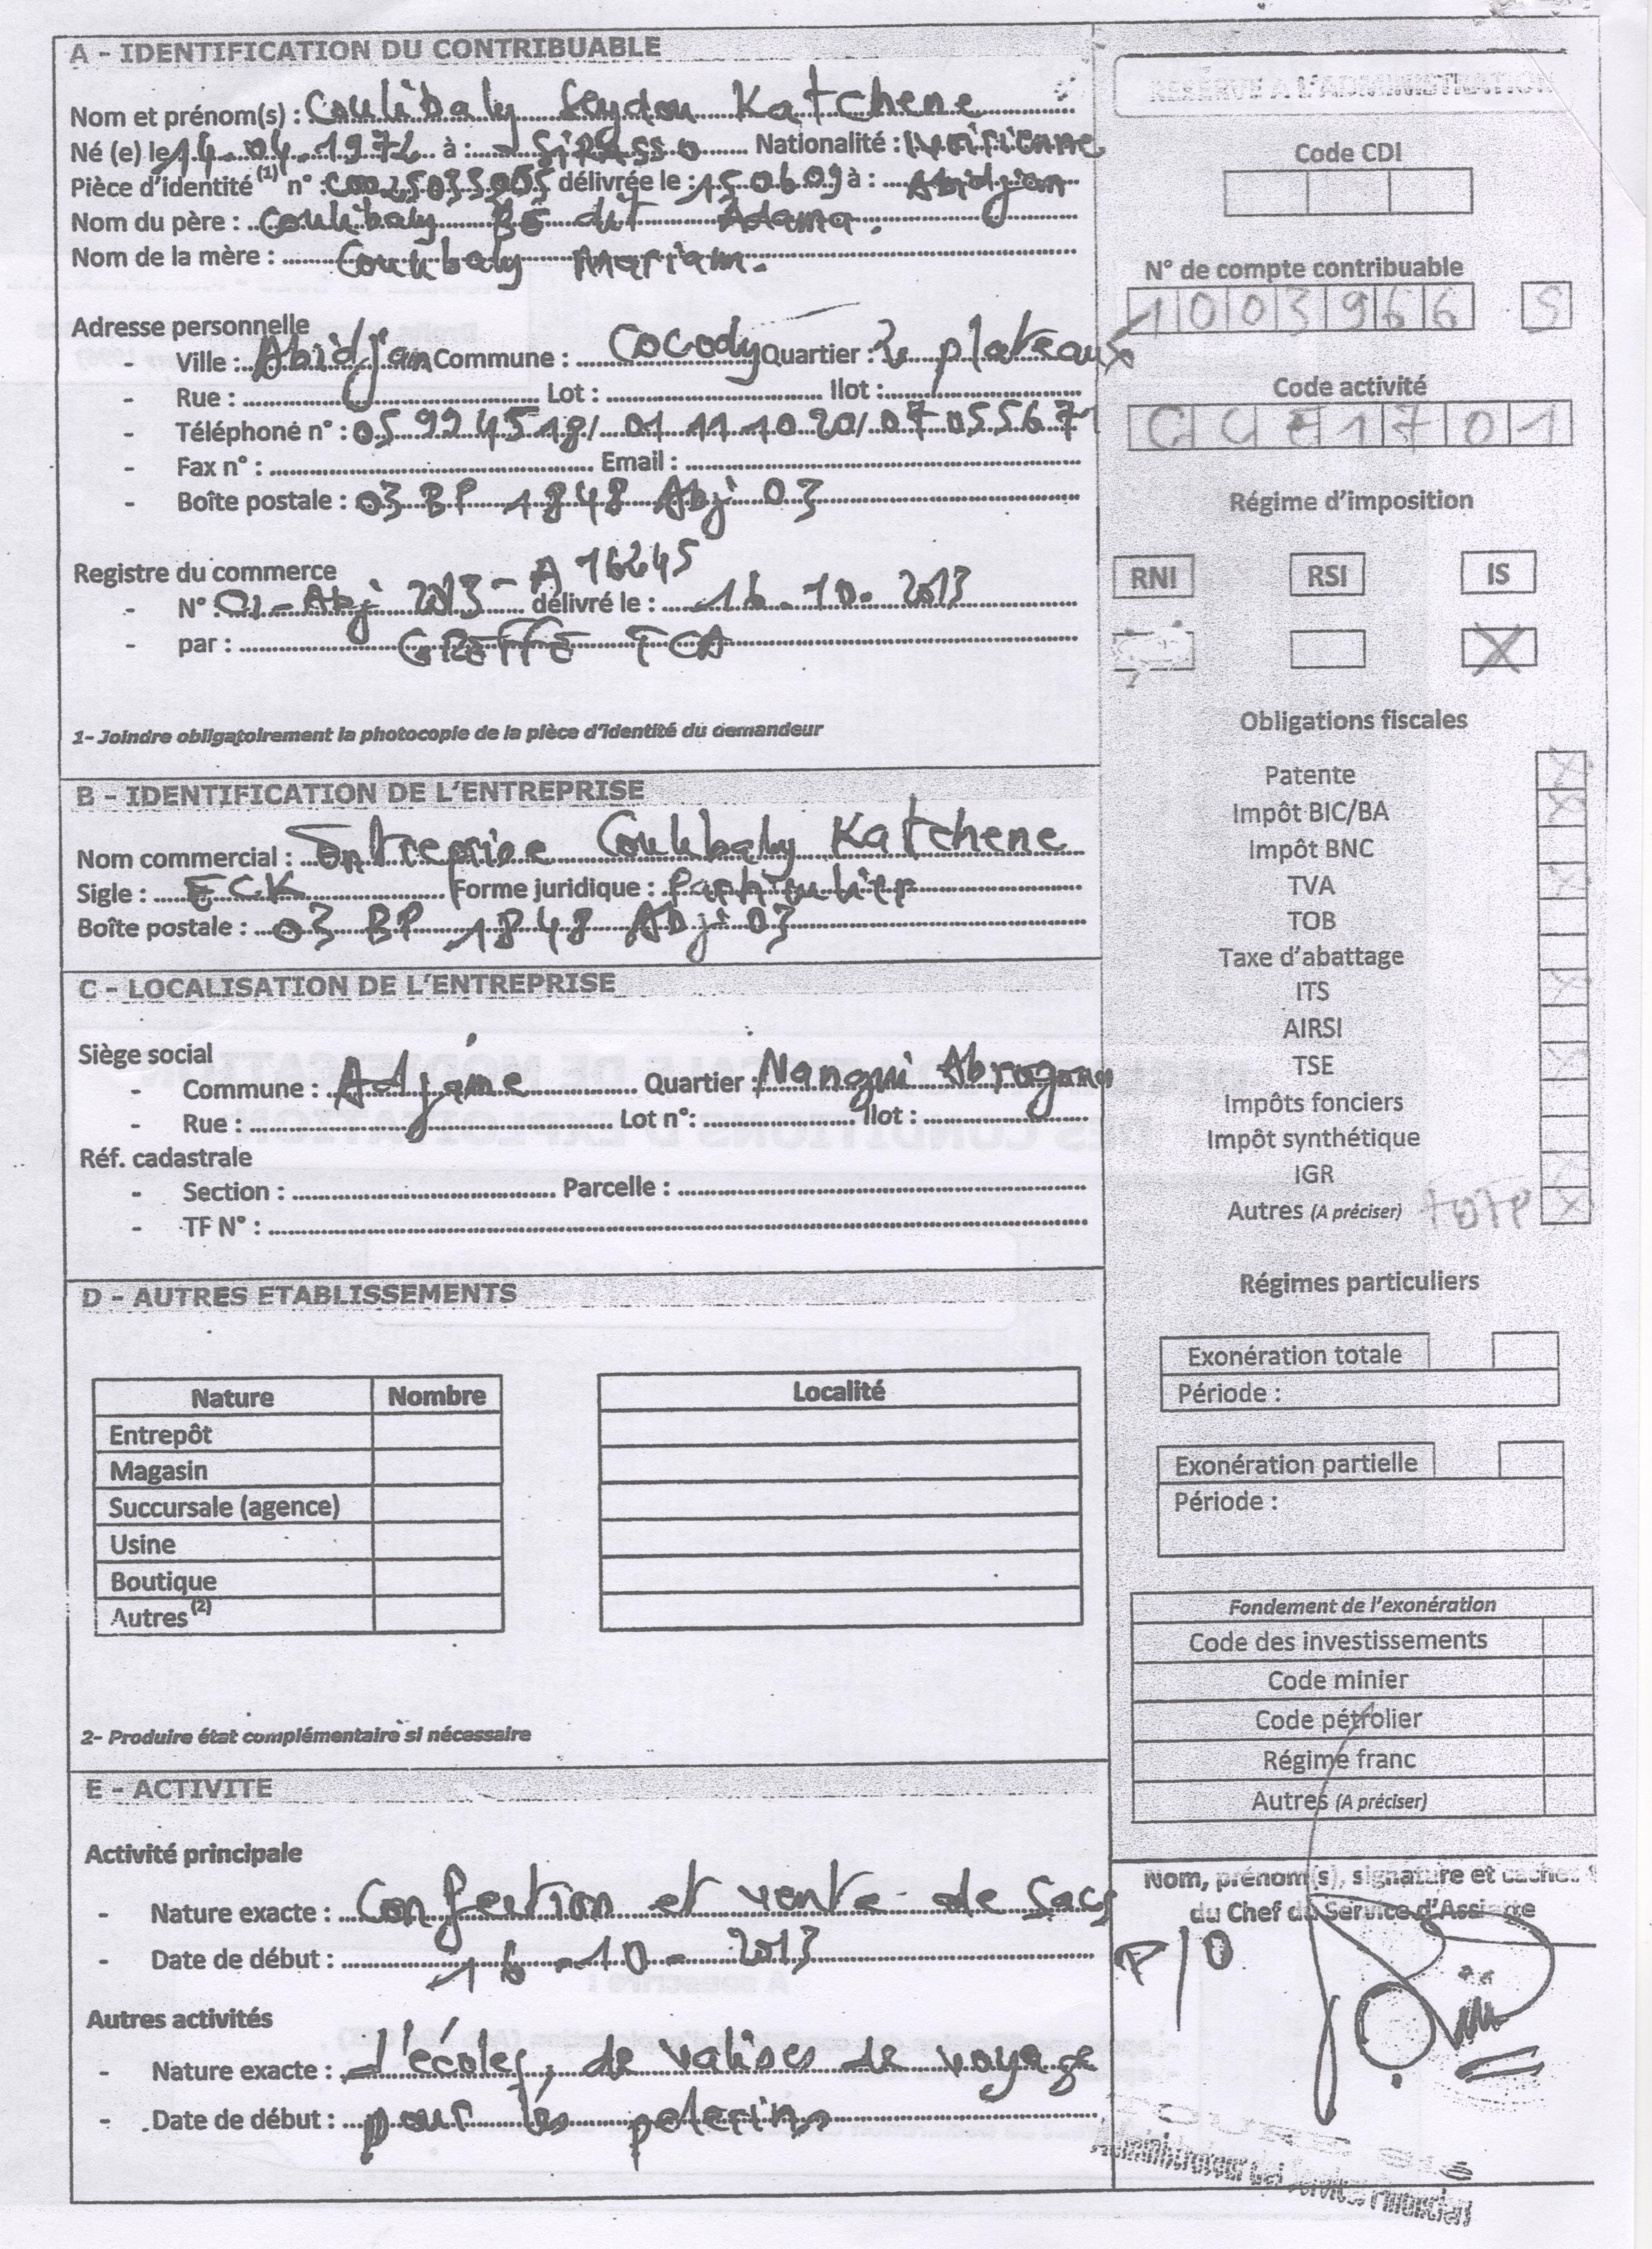 A - IDENTIFICATION DU CONTRIBUABLE
Nom et prénom(s) : Coulibaly Seydou Katchene
Né (e) le 14.04.1972 à : Sirasso Nationalité : Ivoirienne
Pièce d'identité (1) n° : C0025035905 délivrée le : 150609 à : Abidjan
Nom du père : Coulibaly Bê dit Adama.
Nom de la mère : Coulibaly Mariam.
Adresse personnelle
- Ville : Abidjan Commune : Cocody Quartier : 2 plateaux
- Rue : Lot : Ilot :
- Téléphone n° : 05 99 24 45 18 / 01 11 10 20 / 07 05 55 67
- Fax n° : Email :
- Boîte postale : 03 BP 1848 Abj 03
Registre du commerce
- N° CI-Abj 2013 - A 16245 délivré le : 16.10.2013
- par : GREFFE TCA
1- Joindre obligatoirement la photocopie de la pièce d'identité du demandeur
B - IDENTIFICATION DE L'ENTREPRISE
Nom commercial : Entreprise Coulibaly Katchene
Sigle : ECK Forme juridique : Particulier
Boîte postale : 03 BP 1848 Abj 03
C - LOCALISATION DE L'ENTREPRISE
Siège social
- Commune : Adjamé Quartier : Nangui Abrogoua
- Rue : Lot n°: Ilot :
Réf. cadastrale
- Section : Parcelle :
- TF N° :
D - AUTRES ETABLISSEMENTS
Nature Nombre Localité
Entrepôt
Magasin
Succursale (agence)
Usine
Boutique
Autres (2)
2- Produire état complémentaire si nécessaire
E - ACTIVITE
Activité principale
- Nature exacte : Confection et vente de Sacs
- Date de début : 16-10-2013
Autres activités
- Nature exacte : d'écoles, de valises de voyage
- Date de début : pour les pelerins
RESERVE A L'ADMINISTRATION
Code CDI
N° de compte contribuable
1003966 S
Code activité
1701
Régime d'imposition
RNI RSI IS
X
Obligations fiscales
Patente X
Impôt BIC/BA X
Impôt BNC
TVA X
TOB
Taxe d'abattage
ITS X
AIRSI
TSE X
Impôts fonciers
Impôt synthétique
IGR X
Autres (A préciser) X
Régimes particuliers
Exonération totale
Période :
Exonération partielle
Période :
Fondement de l'exonération
Code des investissements
Code minier
Code pétrolier
Régime franc
Autres (A préciser)
Nom, prénom(s), signature et cachet
du Chef du Service d'Assiette
P/O
Administrateur des Services Financiers